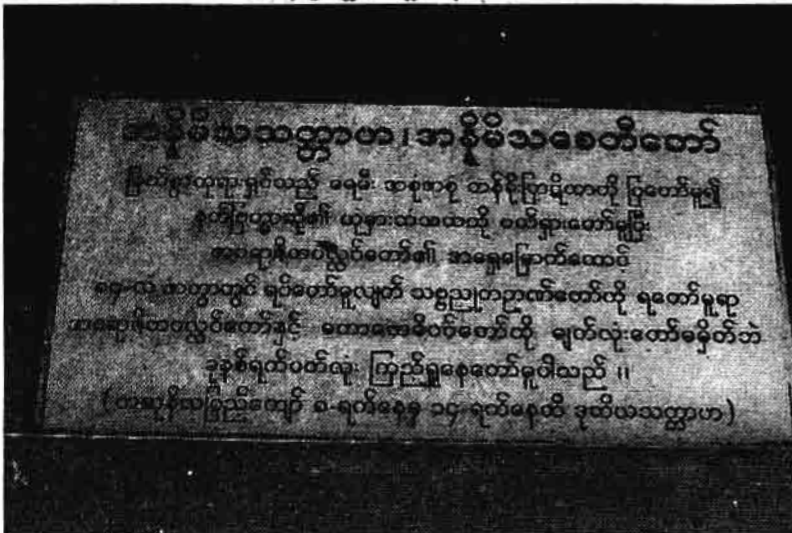 အနိမိသသတ္တာဟ၊ အနိမိသစေတီတော်
မြတ်စွာဘုရားရှင်သည် ရေမီး အစုံအစုံ တန်ခိုးပြာဋိဟာကို ပြတော်မူ၍
နတ်ဗြဟ္မာတို့၏ ယုံမှားသံသယကို ပယ်ရှားတော်မူပြီး
အပရာဇိတပလ္လင်တော်၏ အရှေ့မြောက်ထောင့်
တွင် ရပ်တော်မူလျက် သဗ္ဗညုတဉာဏ်တော်ကို ရတော်မူရာ
အပရာဇိတပလ္လင်တော်နှင့် မဟာဗောဓိပင်တော်ကို မျက်လုံးတော်မမှိတ်ဘဲ
ခုနှစ်ရက်ပတ်လုံး ကြည်ရှုနေတော်မူပါသည် ။
(ကဆုန်လပြည့်ကျော် ၈-ရက်နေ့မှ ၁၄-ရက်နေ့ထိ ဒုတိယသတ္တာဟ)